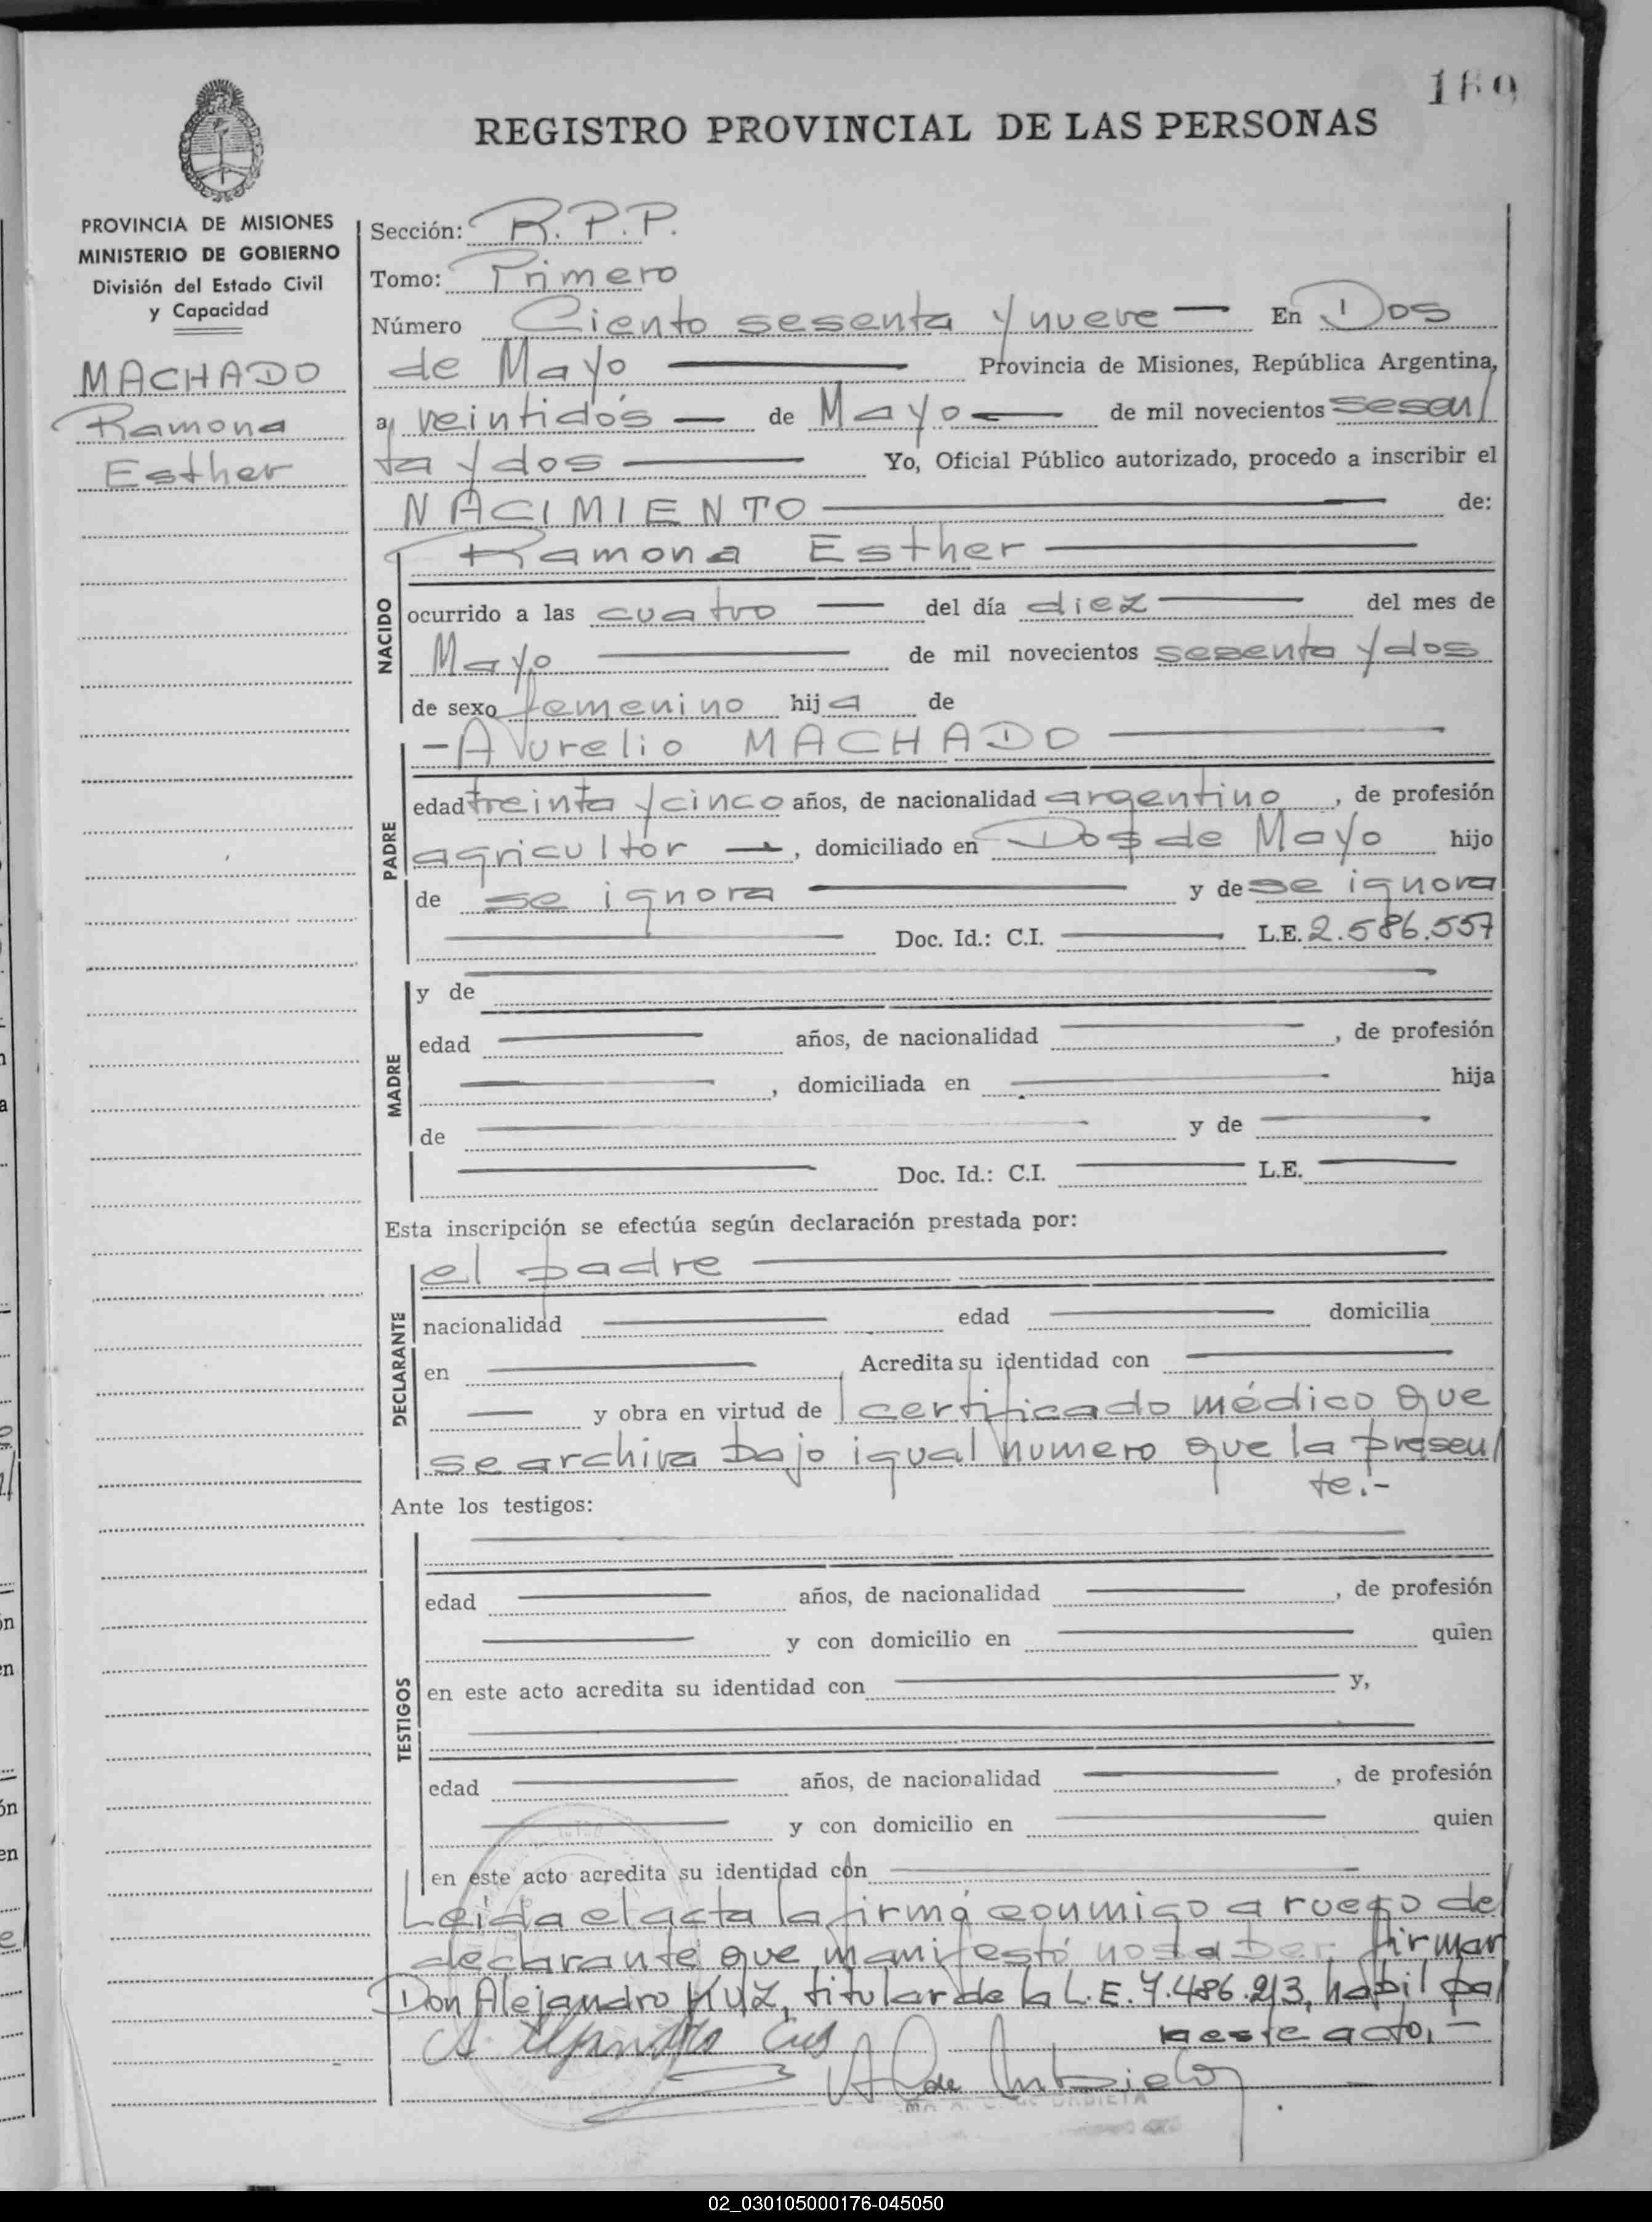 169
REGISTRO PROVINCIAL DE LAS PERSONAS
PROVINCIA DE MISIONES
MINISTERIO DE GOBIERNO
División del Estado Civil
y Capacidad
MACHADO
Ramona
Esther
Sección: R.P.P.
Tomo: Primero
Número Ciento sesenta y nueve — En Dos
de Mayo — Provincia de Misiones, República Argentina,
a veintidós — de Mayo — de mil novecientos sesen/
ta y dos — Yo, Oficial Público autorizado, procedo a inscribir el
NACIMIENTO — de:
Ramona Esther —
NACIDO
ocurrido a las cuatro — del día diez — del mes de
Mayo — de mil novecientos sesenta y dos
de sexo femenino hija de
- Aurelio MACHADO —
PADRE
edad treinta y cinco años, de nacionalidad argentino, de profesión
agricultor —, domiciliado en Dos de Mayo hijo
de se ignora — y de se ignora
— Doc. Id.: C.I. — L.E. 2.586.557
MADRE
y de —
edad — años, de nacionalidad —, de profesión
—, domiciliada en — hija
de — y de —
— Doc. Id.: C.I. — L.E. —
Esta inscripción se efectúa según declaración prestada por:
el padre —
DECLARANTE
nacionalidad — edad — domicilia
en — Acredita su identidad con —
— y obra en virtud de l certificado médico que
se archiva bajo igual numero que la presen/
te.-
Ante los testigos:
TESTIGOS
edad — años, de nacionalidad —, de profesión
— y con domicilio en — quien
en este acto acredita su identidad con — y,
edad — años, de nacionalidad —, de profesión
— y con domicilio en — quien
en este acto acredita su identidad con —
Leida el acta la firma conmigo a ruego del
declarante que manifestó no saber firmar
Don Alejandro KUZ, titular de la L.E. 7.486.213, habil pa/
ra este acto.-
02_030105000176-045050